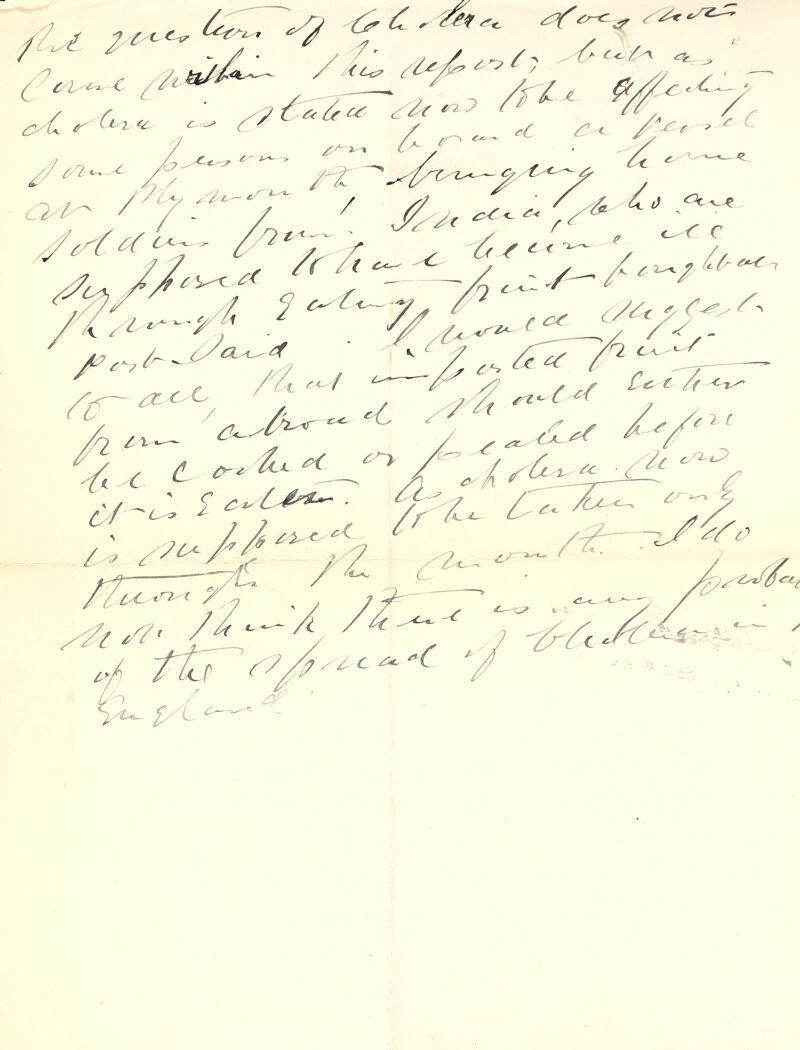 The question of Cholera does not
come within this report, but as
cholera is stated now to be affecting
some persons on board a vessel
at Plymouth, bringing home
soldiers from India, who are
supposed to have become ill
through Eating fruit bought at
port Said. I would suggest
to all, that imported fruit
from abroad should Either
be cooked or pealed before
it is Eaten. As cholera now
is supposed to be taken only
through the mouth. I do
not think there is any
of the spread of Cholera in
England